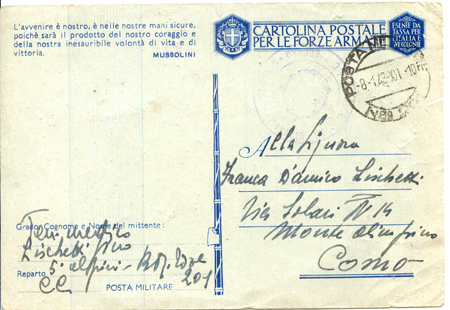 L'avvenire è nostro, è nelle nostre mani sicure,
poichè sarà il prodotto del nostro coraggio e
della nostra inesauribile volontà di vita e di
vittoria.
MUSSOLINI
CARTOLINA POSTALE
PER LE FORZE ARMATE
ESENTE DA
TASSA PER
L'ITALIA E
POSTA MI
Alla Signora
Franca D'Amico Lischetti
Via Solari N 14
Monte Olimpino
Como
Grado, Cognome e Nome del mittente:
Ten. medico
Lischetti Pino
Reparto 5° alpini -
POSTA MILITARE 201